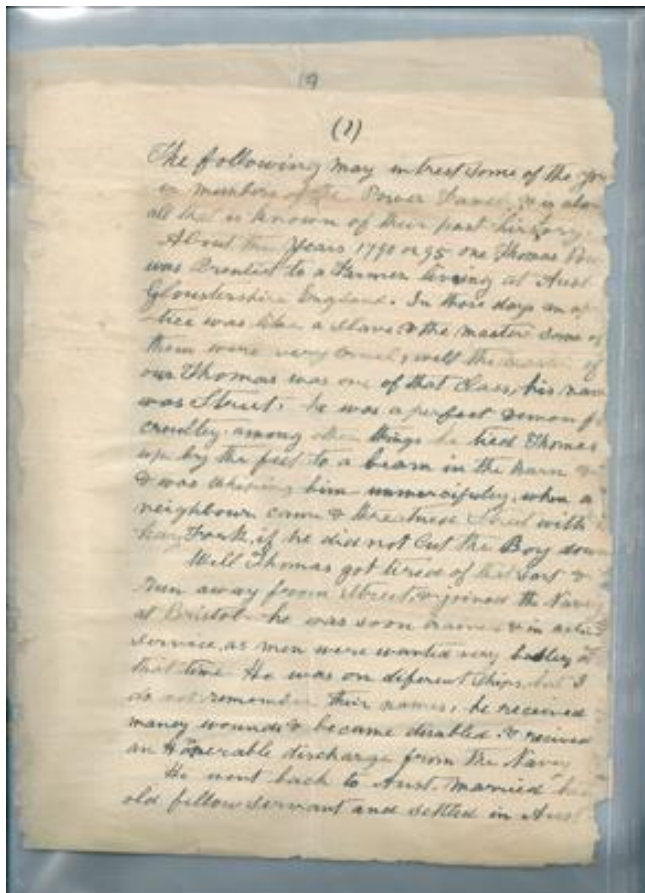 19
(1)
The following may intrest some of the
in members of the Power Family & is
all that is known of their past history
About the Years 1790 or 95 one Thomas
was Prentis to a Farmer living at Aust
Gloustershire England. In those days an
was like a slave & the master some of
them were very cruel, well the of
our Thomas was one of that Class, his
was Street. he was a perfect demon
crueltey among other things he tied Thomas
up by the feet to a beam in the barn
& was whiping him unmercifuley, when a
neighbour came & thretned Street with
hay Fork, if he did not Cut the Boy down
Well Thomas got tired of that sort &
run away from Street, & joined the Navey
at Bristol he was soon & in
service, as men were wanted very badley at
that time He was on diferent Ships, but I
do not remember their names, he received
maney wounds & became disabled & received
an Honerable discharge from the Navey
He went back to Aust. Married
old fellow servant and settled in Aust